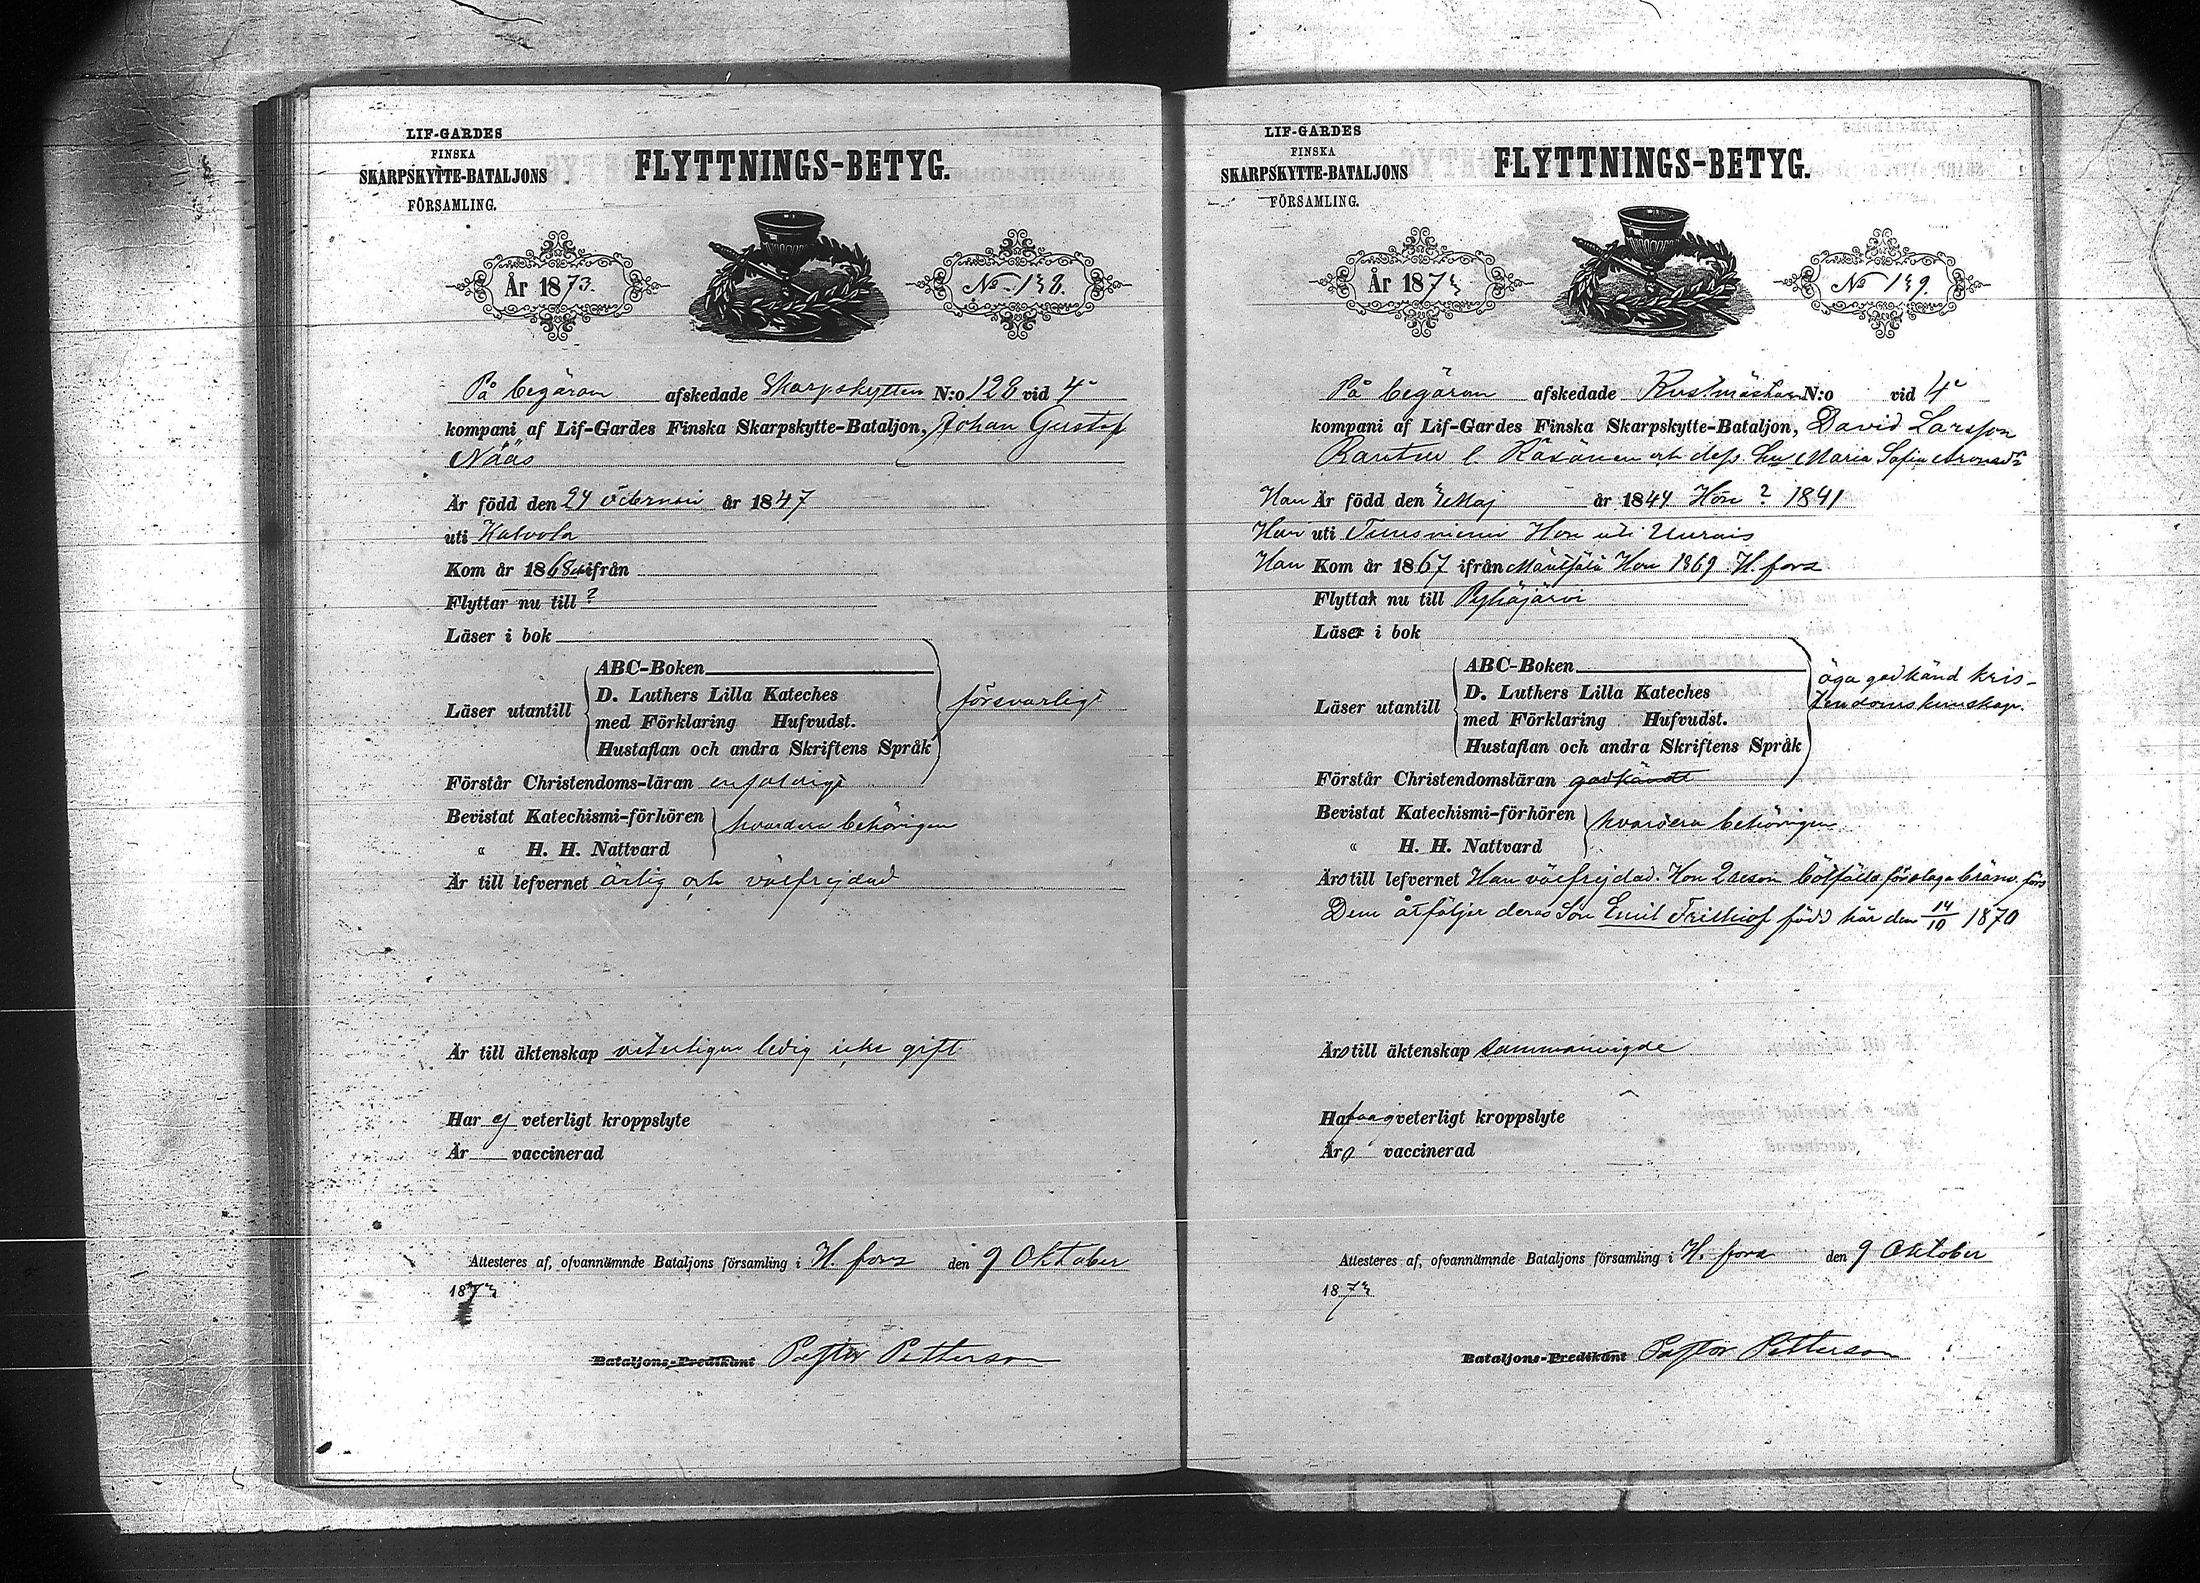 LIF-GARDES
FINSKA
SKARPSKYTTE-BATALJONS
FÖRSAMLING.
FLYTTNINGS-BETYG.
År 1873.
No 138.
På begäran afskedade Skarpskytten N:o 128 vid 4
kompani af Lif-Gardes Finska Skarpskytte-Bataljon, Johan Gustaf
Nääs
Är född den 24 år 1847
uti Kalvola
Kom år 1868 ifrån
Flyttar nu till ?
Läser i bok
ABC-Boken
D. Luthers Lilla Kateches
Läser utantill försvarligt
med Förklaring Hufvudst.
Hustaflan och andra Skriftens Språk
Förstår Christendoms-läran enfaldigt
Bevistat Katechismi-förhören hvardera behörigen
" H. H. Nattvard
Är till lefvernet ärlig och välfrejdad
Är till äktenskap veterligen ledig icke gift
Har ej veterligt kroppslyte
Är vaccinerad
Attesteres af, ofvannämnde Bataljons församling i H. fors den 9 Oktober
1873
Bataljons-Predikant Pastor Petterson
LIF-GARDES
FINSKA
SKARPSKYTTE-BATALJONS
FÖRSAMLING.
FLYTTNINGS-BETYG.
År 1873
No 139.
På begäran afskedade Rustmästaren N:o vid 4
kompani af Lif-Gardes Finska Skarpskytte-Bataljon, David Larsson
Räsänen och dess Maria Sofia
Han Är född den Maj år 1844 Hon ? 1841
Han uti Tuusniemi Hon uti Uurais
Han Kom år 1867 ifrån Mäntsälä Hon 1869 H. fors
Flytta nu till Pyhäjärvi
Läser i bok
ABC-Boken
äga godkänd kris-
D. Luthers Lilla Kateches
Läser utantill tendomskunskap.
med Förklaring Hufvudst.
Hustaflan och andra Skriftens Språk
Förstår Christendomsläran godkändt
Bevistat Katechismi-förhören hvardera behörigen
" H. H. Nattvard
Äro till lefvernet Han välfrejdad. Hon 2 bötfälld
Dem åtföljer deras Son Emil Frithiof född här den 14/10 1870
Äro till äktenskap sammanvigde
veterligt kroppslyte
Äro vaccinerad
Attesteres af, ofvannämnde Bataljons församling i H. fors den 9 Oktober
1873
Bataljons-Predikant Pastor Petterson